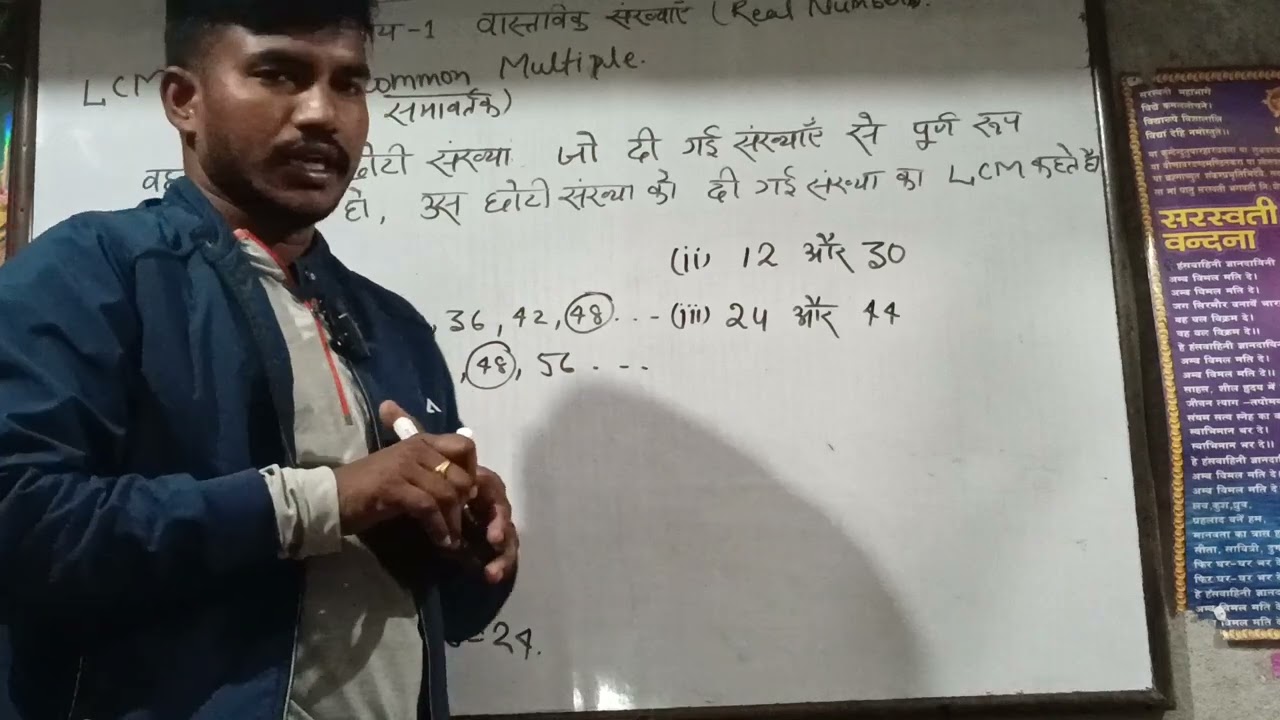 य-1 वास्तविक संख्याएँ (Real Numbers.
LCM Common Multiple.
समावर्तक)
वह छोटी संख्या जो दी गई संख्याएँ से पूर्ण रूप
हो, उस छोटी संख्या को दी गई संख्या का LCM कहते हैं।
(ii) 12 और 30
, 36, 42, 48 . . . - (iii) 24 और 44
, 48, 56 . . - -
= 24.
सरस्वती महाभागे
विद्ये कमललोचने।
विद्यारूपे विशालाक्षि
विद्यां देहि नमोस्तुते।।
सरस्वती
वन्दना
हंसवाहिनी ज्ञानदायिनी
अम्ब विमल मति दे।
अम्ब विमल मति दे।।
जग सिरमौर बनायें भारत
वह बल विक्रम दे।
वह बल विक्रम दे।।
हे हंसवाहिनी ज्ञानदायिनी
अम्ब विमल मति दे।
अम्ब विमल मति दे।।
साहस, शील हृदय में
जीवन त्याग-तपोमय
संयम सत्य स्नेह का व
स्वाभिमान भर दे।
स्वाभिमान भर दे।।
हे हंसवाहिनी ज्ञानदायि
अम्ब विमल मति दे।
अम्ब विमल मति दे।।
लव, कुश, ध्रुव,
प्रहलाद बनें हम,
मानवता का त्रास ह
सीता, सावित्री, दु
फिर घर-घर भर दे
फिर घर-घर भर दे
हे हंसवाहिनी ज्ञान
अम्ब विमल मति दे
विमल मति दे।।